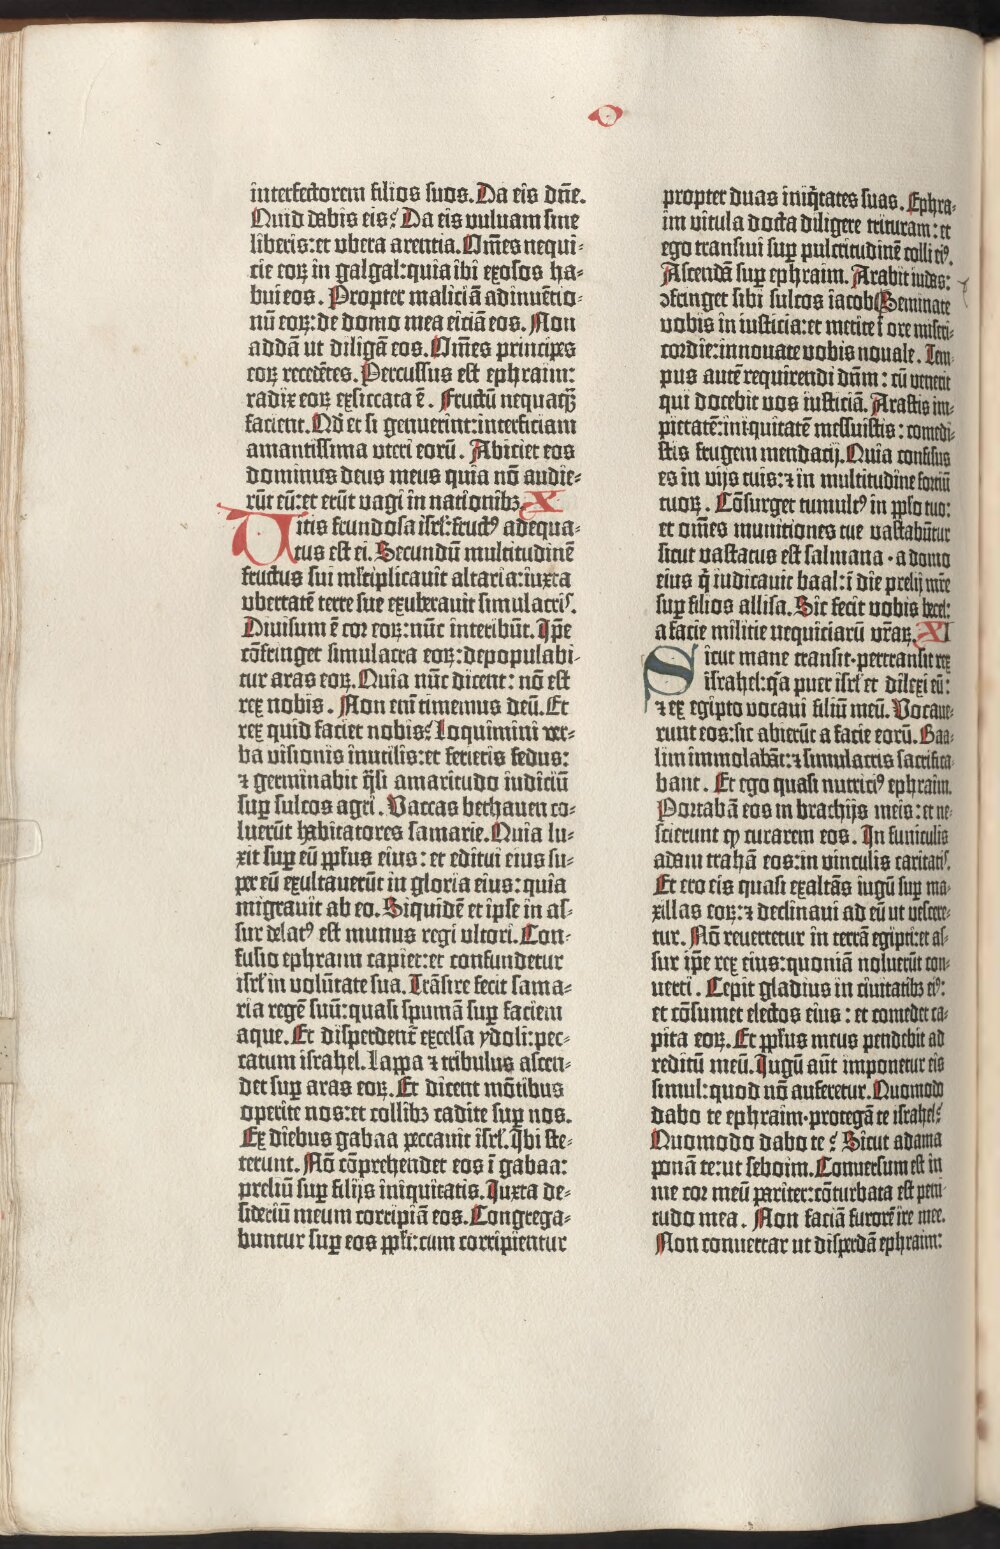 O
interfectorem filios suos. Da eis dñe.
Quid dabis eis? Da eis vulvam sine
liberis: et ubera arentia. Om̃es nequi-
cie eoꝝ in galgal: quia ibi exosos ha-
bui eos. Propter maliciã adinuẽtio-
nũ eoꝝ: de domo mea eiciã eos. Non
addã ut diligã eos. Om̃es principes
eoꝝ recedẽtes. Percussus est ephraim:
radix eoꝝ exsiccata ẽ. Fructũ nequaq̃
facient. Qd̃ et si genuerint: interficiam
amantissima uteri eorũ. Abiciet eos
dominus deus meus quia nõ audie-
rũt eũ: et erũt vagi in nationibꝫ. X
Vitis frundosa isrl̃: fructꝰ adequa-
tus est ei. Secundũ multitudinẽ
fructus sui ml̃tiplicavit altaria: iuxta
ubertatẽ terre sue exuberavit simulacris.
Divisum ẽ cor eoꝝ: nũc interibũt. Ip̃e
cõfringet simulacra eoꝝ: depopulabi-
tur aras eoꝝ. Quia nũc dicent: nõ est
rex nobis. Non eni timemus deũ. Et
rex quid faciet nobis? Loquimini ver-
ba visionis inutilis: et ferietis fedus:
⁊ germinabit q̃si amaritudo iudiciũ
suꝑ sulcos agri. Vaccas bethaven co-
luerũt habitatores samarie. Quia lu-
xit suꝑ eũ pp̃lus eius: et editui eius su-
per eũ exultaverũt in gloria eius: quia
migravit ab eo. Siquidẽ et ipse in as-
sur delatꝰ est munus regi ultori. Con-
fusio ephraim capiet: et confundetur
isrl̃ in volũtate sua. Trãsire fecit sama-
ria regẽ suũ: quasi spumã suꝑ faciem
aque. Et disperdent̃ excelsa ydoli: pec-
catum israhel. Lappa ⁊ tribulus ascen-
det suꝑ aras eoꝝ. Et dicent mõtibus
operite nos: et collibꝫ cadite suꝑ nos.
Ex diebus gabaa peccavit isrl̃. ibi ste-
terunt. Nõ cõprehendet eos ĩ gabaa:
preliũ suꝑ filijs iniquitatis. Juxta de-
sideriũ meum corripiã eos. Congrega-
buntur suꝑ eos pp̃li: cum corripientur
propter duas iniq̃tates suas. Ephra-
im vitula docta diligere trituram: et
ego transivi suꝑ pulcritudinẽ colli eiꝰ.
Ascendã suꝑ ephraim. Arabit iudas:
ↄfringet sibi sulcos iacob. Seminate
vobis in iusticia: et metite ĩ ore miseri-
cordie: innovate vobis novale. Tem-
pus autẽ requirendi dñm: cũ venerit
qui docebit vos iusticiã. Arastis im-
pietatẽ: iniquitatẽ messuistis: comedi-
stis frugem mendacij. Quia confisus
es in vijs tuis: ⁊ in multitudine fortiũ
tuoꝝ. Cõsurget tumultꝰ in pp̃lo tuo:
et om̃es munitiones tue vastabũtur
sicut vastatus est salmana · a domo
eius q̃ iudicavit baal: ĩ die prelij mr̃e
suꝑ filios allisa. Sic fecit vobis betel:
a facie militie nequiciarũ vr̃aꝝ. XI
Sicut mane transit · pertransiit rex
israhel: q̃a puer isrl̃ et dilexi eũ:
⁊ ex egipto vocavi filiũ meũ. Vocave-
runt eos: sic abierũt a facie eorũ. Baa-
lim immolabãt: ⁊ simulacris sacrifica-
bant. Et ego quasi nutriciꝰ ephraim.
Portabã eos in brachijs meis: et ne-
scierunt ꝙ curarem eos. In funiculis
adam trahã eos: in vinculis caritatis.
Et ero eis quasi exaltãs iugũ suꝑ ma-
xillas eoꝝ: ⁊ declinavi ad eũ ut vescere-
tur. Nõ revertetur in terrã egipti: et as-
sur ip̃e rex eius: quoniã noluerũt con-
verti. Cepit gladius in civitatibꝫ eiꝰ:
et cõsumet electos eius: et comedet ca-
pita eoꝝ. Et pp̃lus meus pendebit ad
reditũ meũ. Jugũ aũt imponetur eis
simul: quod nõ auferetur. Quomodo
dabo te ephraim · protegã te israhel?
Quomodo dabo te? Sicut adama
ponã te: ut seboim. Conversum est in
me cor meũ pariter: cõturbata est peni-
tudo mea. Non faciã furorẽ ire mee.
Non convertar ut disperdã ephraim: